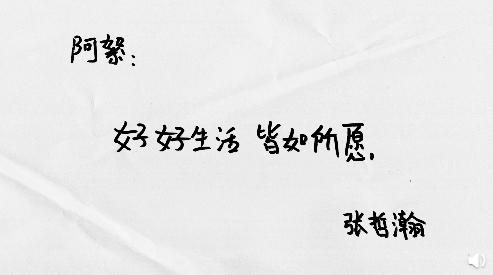 阿絮：
好好生活 皆如所愿.
张哲瀚